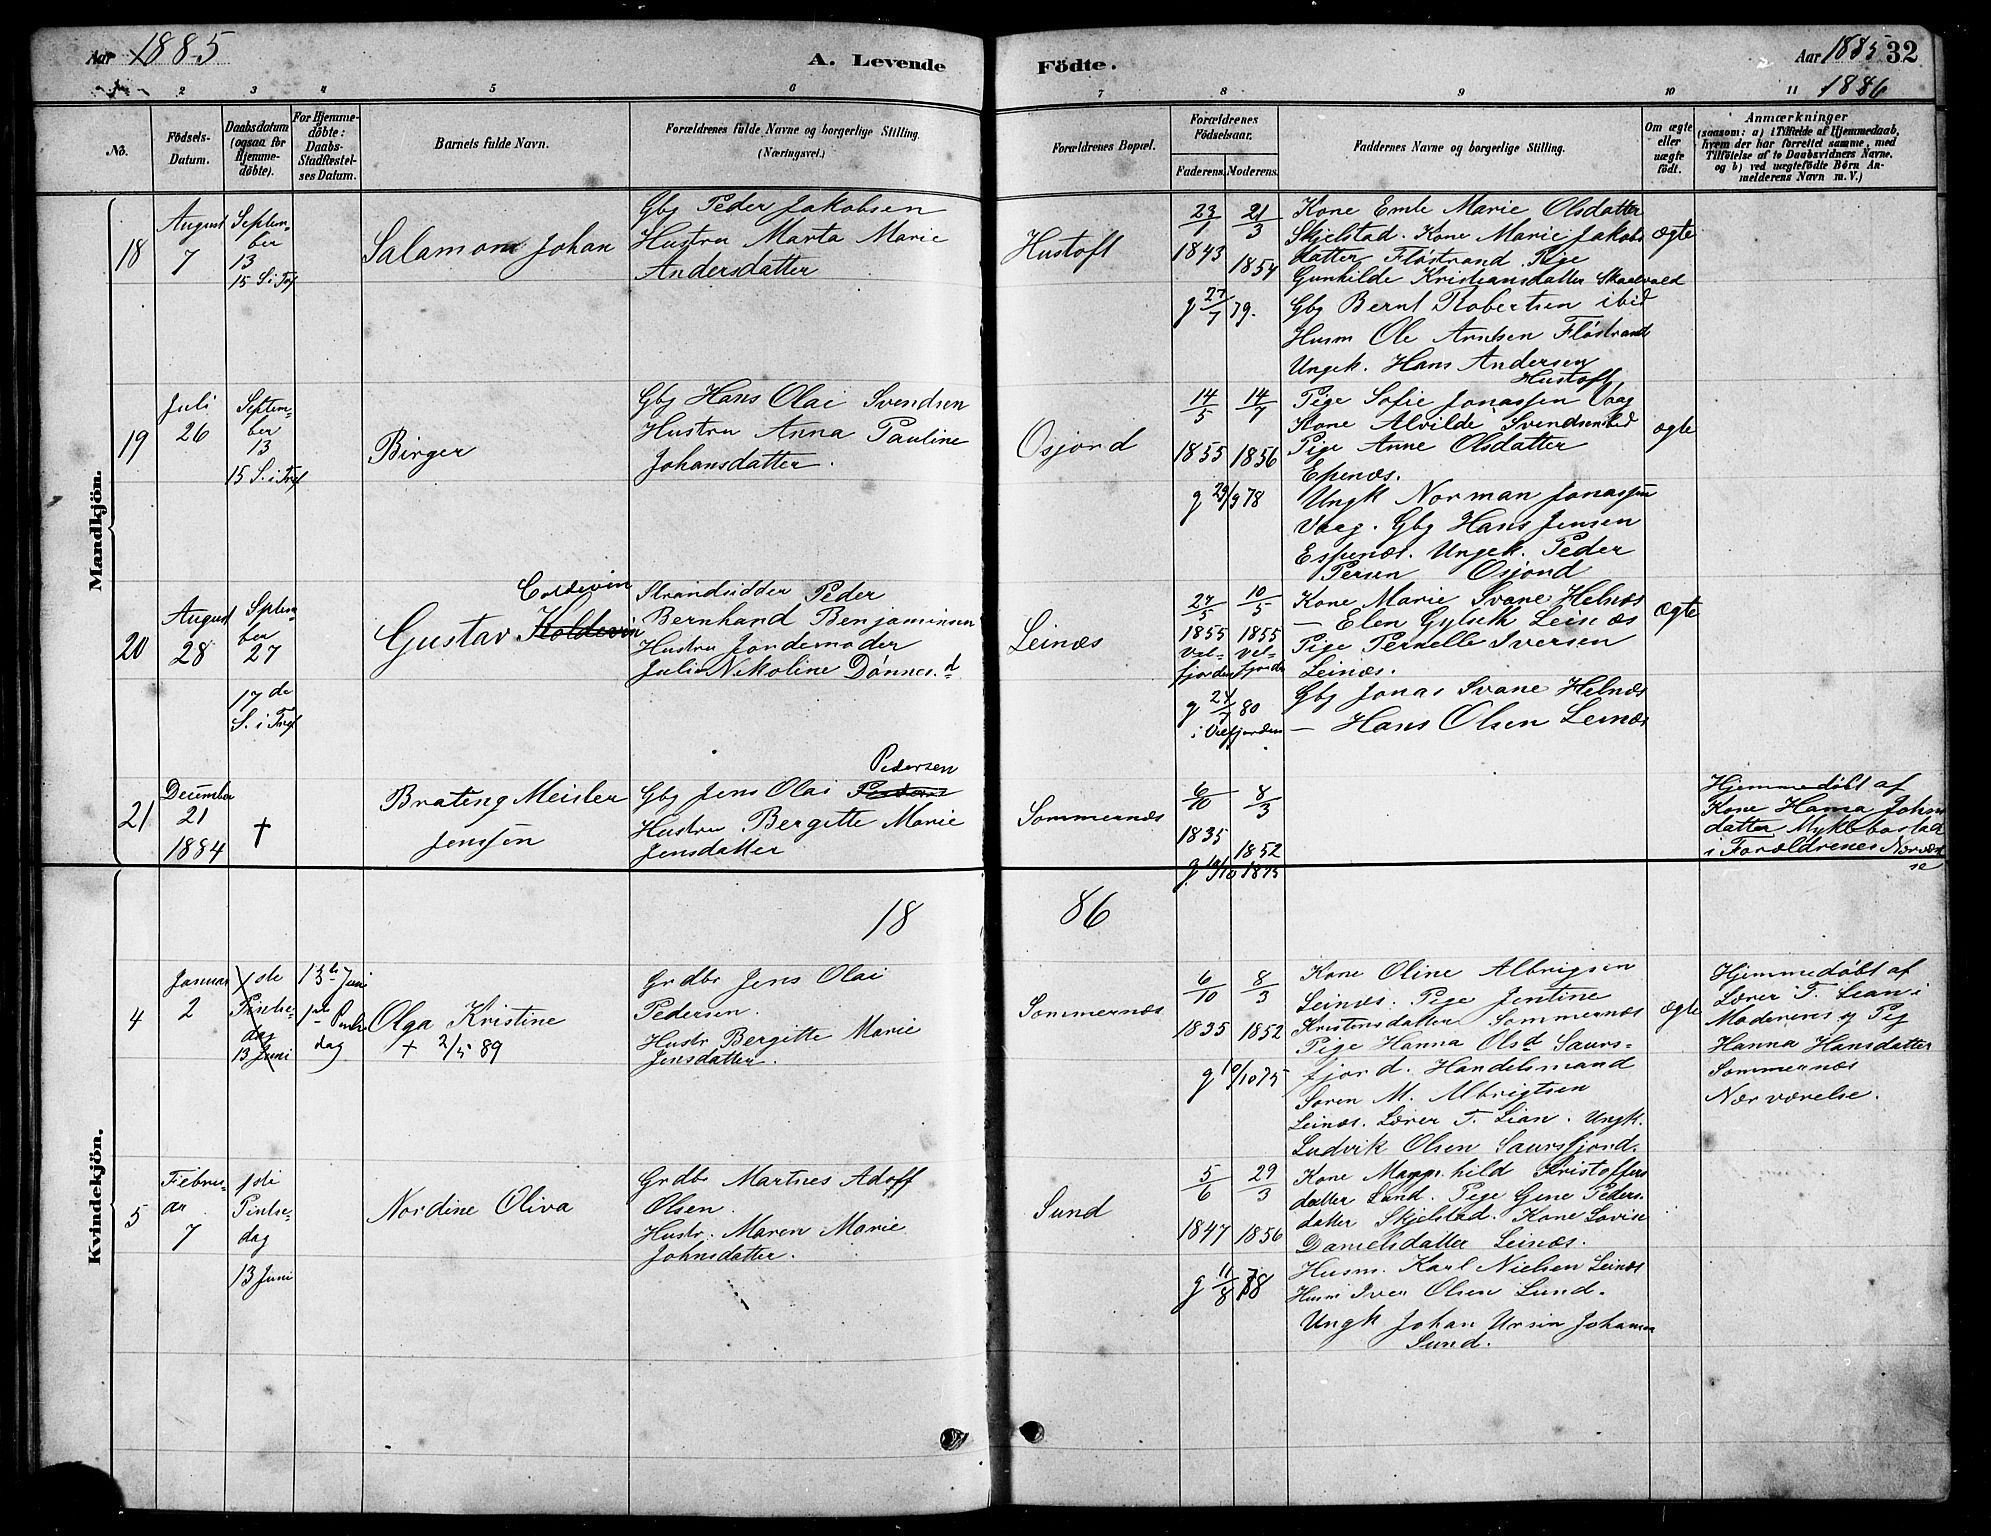 Aar 1885
A. Levende
Födte.
Aar 1885
1886
32
2 3 4 5 6 7 8 9 10 11
No.
Födsels-
Datum.
Daabsdatum
(ogsaa for
Hjemme-
døbte).
For Hjemme-
døbte:
Daabs-
Stadfæstel-
ses Datum.
Barnets fulde Navn.
Forældrenes fulde Navne og borgerlige Stilling.
(Næringsvei.)
Forældrenes Bopæl.
Forældrenes
Födselsaar.
Faderens. Moderens.
Faddernes Navne og borgerlige Stilling.
Om ægte
eller
uægte
födt.
Anmærkninger
(saasom: a) i Tilfælde af Hjemmedaab,
hvem der har forrettet samme, med
Tilföielse af to Daabsvidners Navne.
og b) ved uægtefödte Börn An-
melderens Navn m. V.)
Mandkjön.
18
August
7
Septem-
ber
13
15 S. i Tref
Salamon Johan
Gbg Peder Jakobsen
Hustru Marta Marie
Andersdatter
Hustoft
23/1 21/3
1843 1854
g 27/7 79.
Kone Emle Marie Olsdatter
Skjelstad. Kone Marie Jakobs
datter Fløstrand. Pige
Gunhilde Kristiansdatter Skaalvold
Gbg Bernt Robertsen ibid
Husm Ole Arntsen Fløstrand
Ungk. Hans Andersen
Hustoft
ægte
19
Juli
26
Septem-
ber
13
15 S. i Tref
Birger
Gbg Hans Olai Svendsen
Hustru Anna Pauline
Johansdatter.
Osjord
14/5 14/7
1855 1856
g 29/9 78
Pige Sofie Jonassen Vaag
Kone Alvilde Svendsen ibid
Pige Anne Olsdatter
Epenæs.
Ungk Norman Jonassen
Vaag. Gbg Hans Jensen
Espenæs. Ungk. Peder
Persen Osjord
ægte
20
August
28
Septem-
ber
27
17de
S. i Tref
Coldevin
Gustav Koldevin
Strandsidder Peder
Bernhand Benjaminsen
Hustru Jordemoder
Julia Nikoline Dønnes.d
Leinæs
27/5 10/5
1855 1855
Vel- Vel-
fjorden fjorden
g 24/7 80
i Velfjorden
Kone Marie Svane Helnæs
— Elen Gylseth Leinæs
Pige Pernelle Iversen
Leinæs.
Gbg Jonas Svane Helnæs
— Hans Olsen Leinæs
ægte
21
December
21
1884
†
Brating Meisler
Jenssen
Pedersen
Gbg Jens Olai
Hustru Bergitte Marie
Jensdatter
Sommernæs
6/10 8/3
1835 1852
g 9/10 1875
Hjemmedøbt af
Kone Hanna Johans
datter Myklebostad
i Forældrenes Nærværel
se
18 86
Kvindekjön.
4
Januar
2
1ste
Pintse-
dag
13 Juni
13de Juni
1ste Pintse
dag
Olga Kristine
+ 2/5 89
Grdbr Jens Olai
Pedersen.
Hustr. Bergitte Marie
Jensdatter.
Sommernæs
6/10 8/3
1835 1852
g 10/10 75
Kone Oline Albrigsen
Leinæs. Pige Jentine
Kristensdatter Sommernæs
Pige Hanna Olsd Saurs-
fjord. Handelsmand
Søren M. Albrigtsen
Leinæs. Lærer T. Lian. Ungk.
Ludvik Olsen Saursfjord.
ægte
Hjemmedøbt af
Lærer T. Lian i
Moderens og Pig
Hanna Hansdatter
Sommernæs
Nærværelse.
5
Febru-
ar
7
1ste
Pintse-
dag
13 Juni
Nordine Oliva
Grdbr Martnes Adoff
Olsen.
Hustr. Maren Marie
Johnsdatter.
Sund
5/6 29/3
1847 1856
g 11/8 78
Kone Magnhild Kristoffers
datter Sund. Pige Gine Peders
datter Skjelstad. Kone Lovise
Danielsdatter Leinæs.
Husm. Karl Nielsen Leinæs
Husm Iver Olsen Sund.
Ungk Johan Ursin Johansen
Sund.